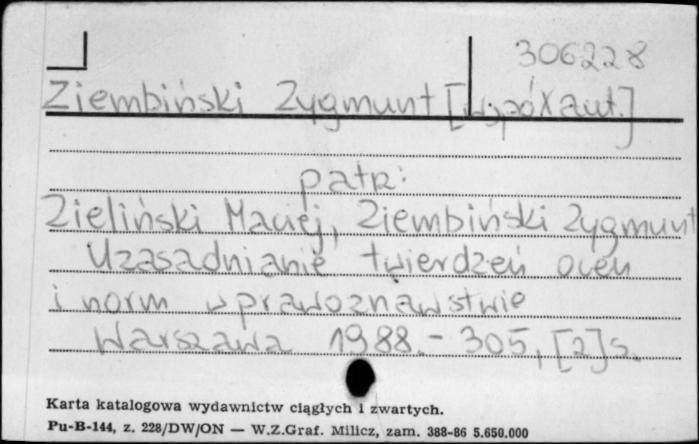 306228
Ziembiński Zygmunt [współaut.]
patrz:
Zieliński Maciej, Ziembiński Zygmunt
Uzasadnianie twierdzeń ocen
i norm w prawoznawstwie
Warszawa 1988.- 305, [2] s.
Karta katalogowa wydawnictw ciągłych i zwartych.
Pu-B-144, z. 228/DW/ON — W.Z.Graf. Milicz, zam. 388-86 5.650.000